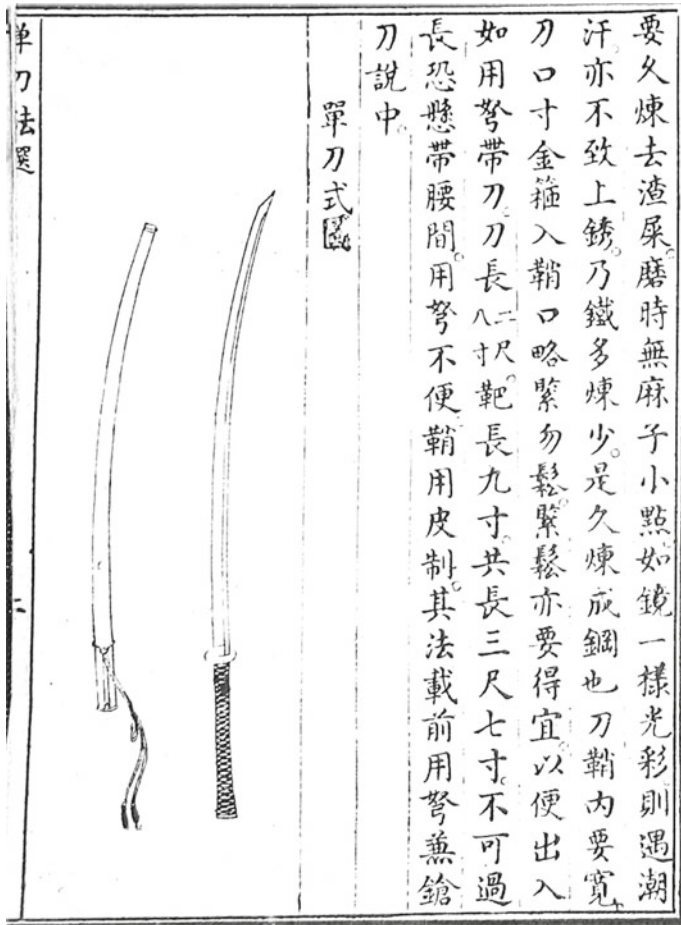 要久煉去渣屎。磨時無麻子小點。如鏡一樣光彩則遇潮
汗。亦不致上銹。乃鐵多煉少。是久煉成鋼也刀鞘內要寬。
刀口寸金箍入鞘口略緊勿鬆。緊鬆亦要得宜。以便出入
如用弩帶刀。刀長二尺八寸。靶長九寸。共長三尺七寸。不可過
長恐懸帶腰間。用弩不便鞘用皮制。其法載前用弩兼鎗
刀說中。
單刀式
單刀法選